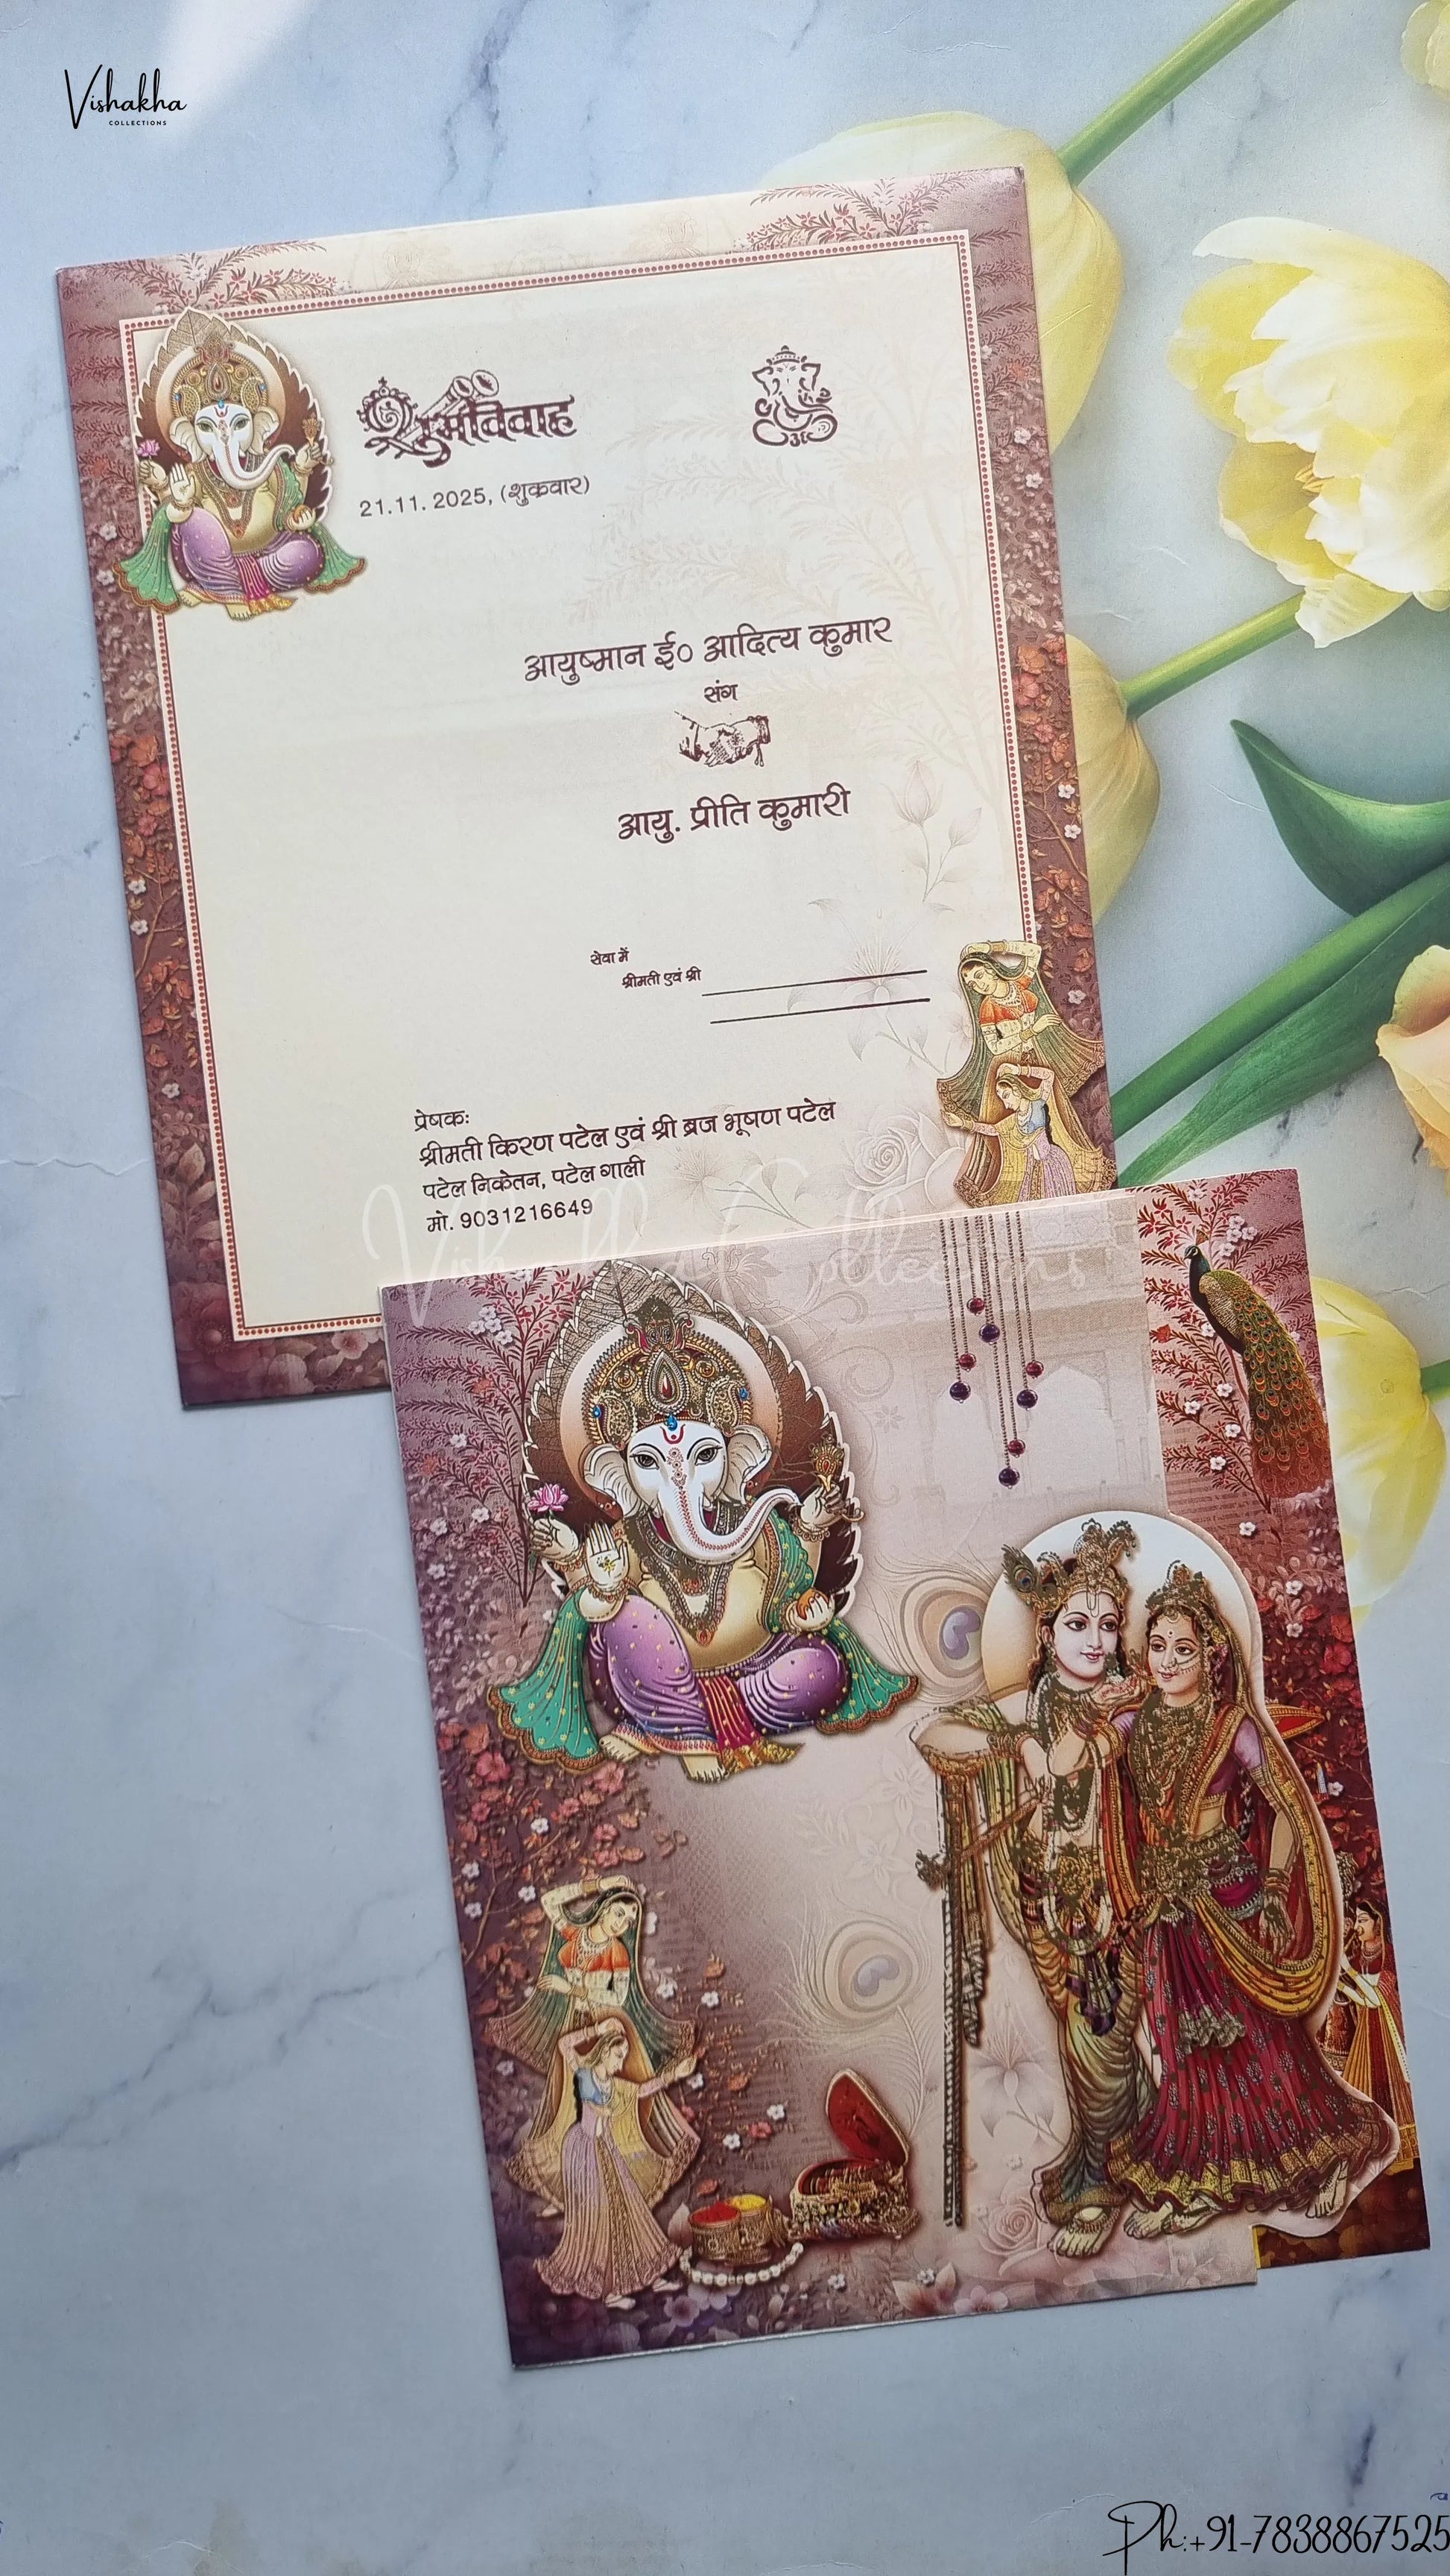 Vishakha
COLLECTIONS
शुभविवाह
21.11.2025, (शुक्रवार)
आयुष्मान ई० आदित्य कुमार
संग
आयु. प्रीति कुमारी
सेवा में
श्रीमती एवं श्री
प्रेषक:
श्रीमती किरण पटेल एवं श्री ब्रज भूषण पटेल
पटेल निकेतन, पटेल गाली
मो. 9031216649
Vishakha Collections
Ph:+91-7838867525